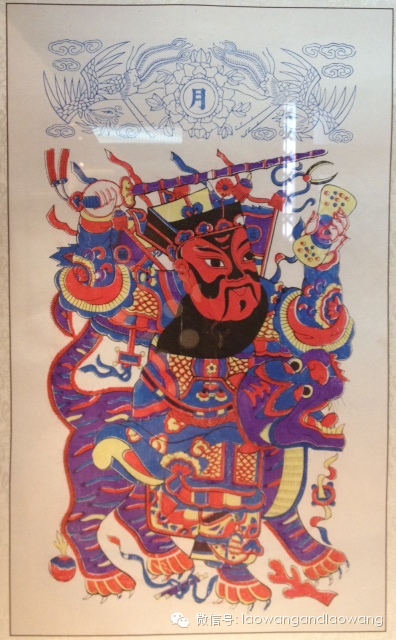 月
微信号: laowangandlaowang